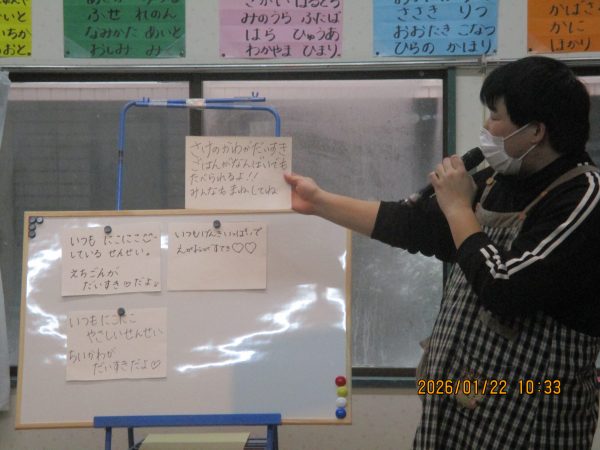 ふせ れのん
なみかた あいと
おしみ み
みのうら ふたば
はら ひゅうあ
わかやま ひまり
ささき りつ
おおたき こなつ
ひらの かほり
かに
はかり
さけのかわがだいすき
ごはんがなんばいでも
たべられるよ!!
みんなもまねしてね
いつも にこにこ♡
している せんせい。
えちごんが
だいすき♡だよ♪
いつもげんきいっぱい!で
えがおがすてき♡♡
いつもにこにこ
やさしいせんせい
ちいかわが
だいすきだよ♡
2026/01/22 10:33